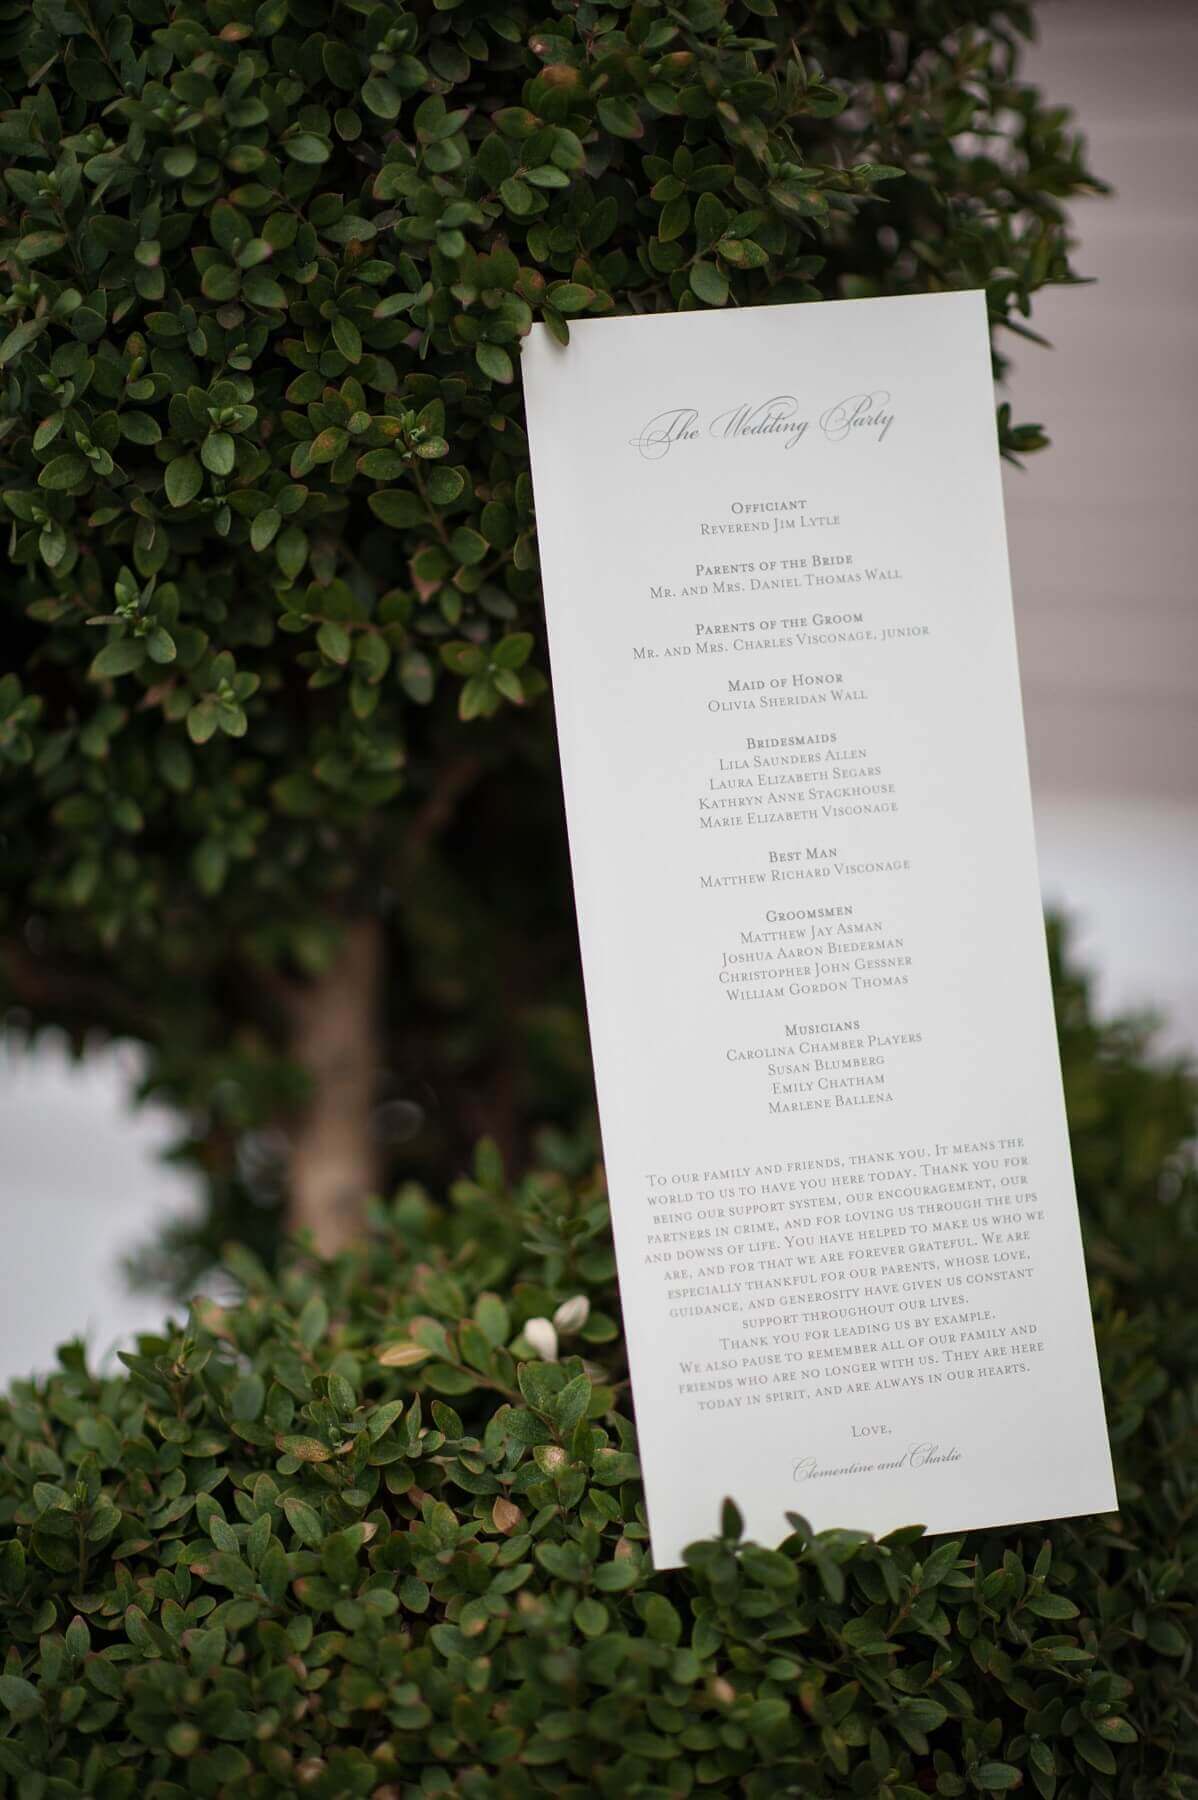 The Wedding Party
Officiant
Reverend Jim Lytle
Parents of the Bride
Mr. and Mrs. Daniel Thomas Wall
Parents of the Groom
Mr. and Mrs. Charles Visconage, junior
Maid of Honor
Olivia Sheridan Wall
Bridesmaids
Lila Saunders Allen
Laura Elizabeth Segars
Kathryn Anne Stackhouse
Marie Elizabeth Visconage
Best Man
Matthew Richard Visconage
Groomsmen
Matthew Jay Asman
Joshua Aaron Biederman
Christopher John Gessner
William Gordon Thomas
Musicians
Carolina Chamber Players
Susan Blumberg
Emily Chatham
Marlene Ballena
To our family and friends, thank you. It means the
world to us to have you here today. Thank you for
being our support system, our encouragement, our
partners in crime, and for loving us through the ups
and downs of life. You have helped to make us who we
are, and for that we are forever grateful. We are
especially thankful for our parents, whose love,
guidance, and generosity have given us constant
support throughout our lives.
Thank you for leading us by example.
We also pause to remember all of our family and
friends who are no longer with us. They are here
today in spirit, and are always in our hearts.
Love,
Clementine and Charlie